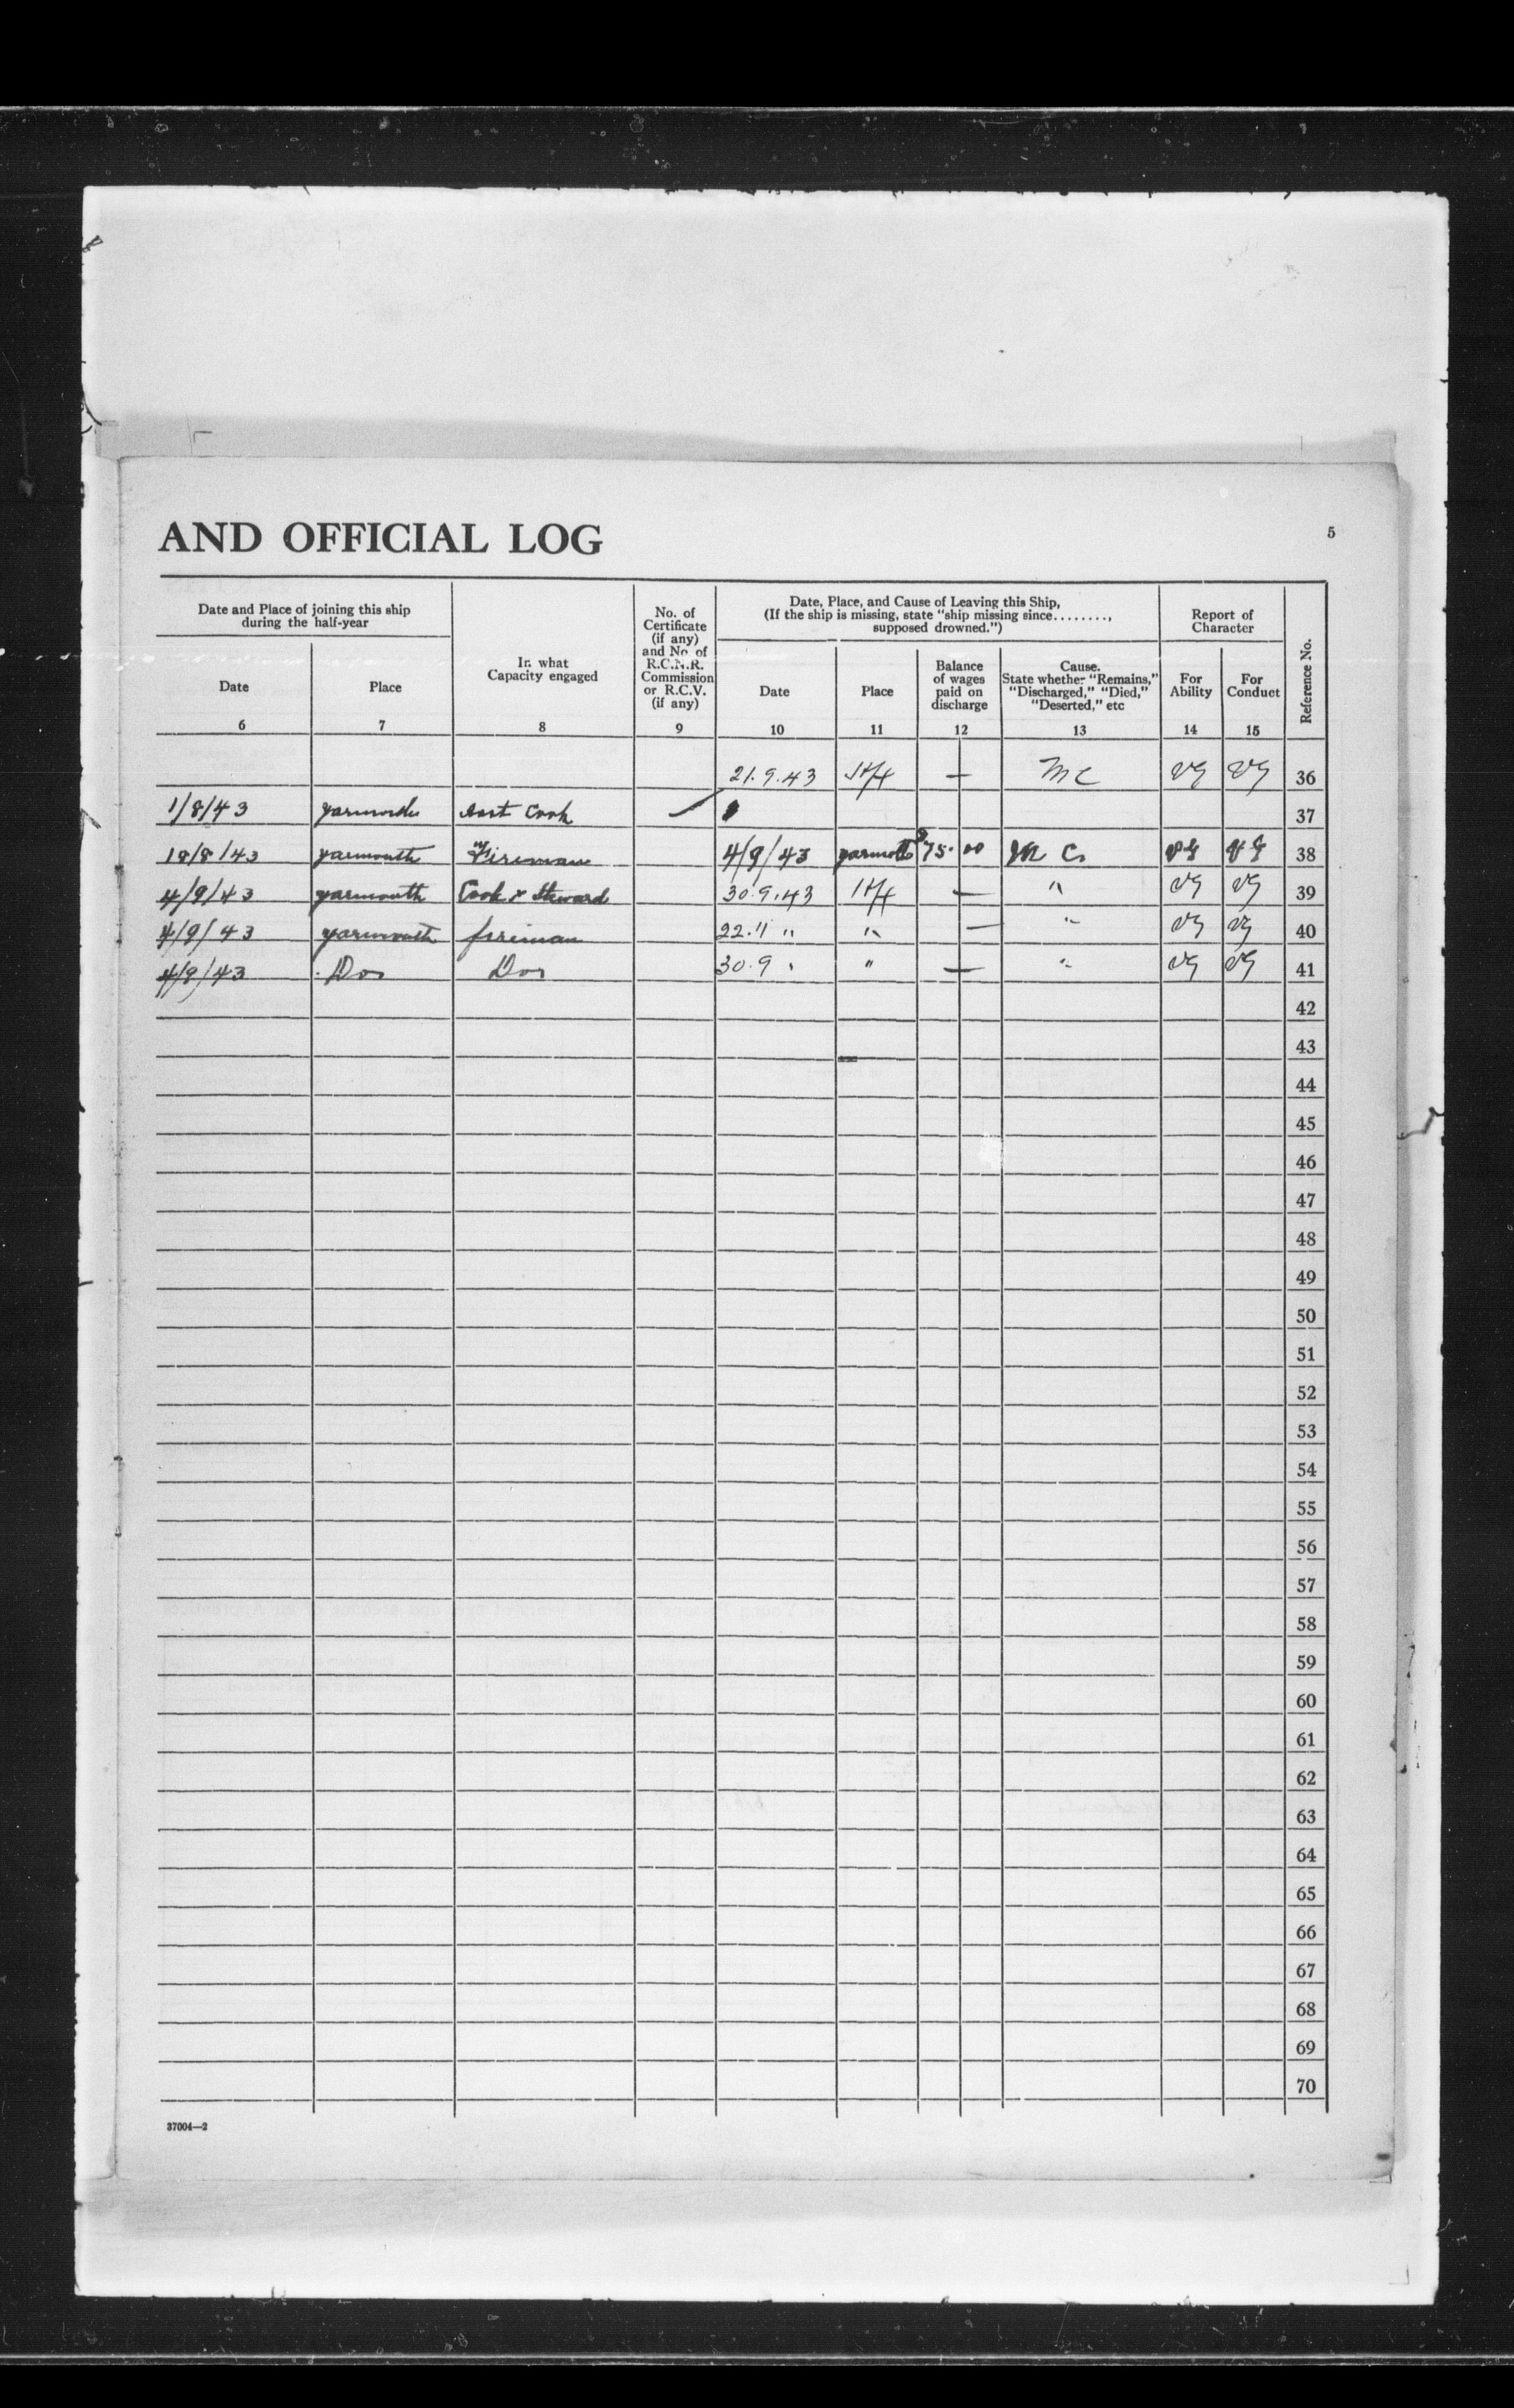 AND OFFICIAL LOG 5
Date and Place of joining this ship
during the half-year
In what
Capacity engaged
No. of
Certificate
(if any)
and No. of
R.C.N.R.
Commission
or R.C.V.
(if any)
Date, Place, and Cause of Leaving this Ship,
(If the ship is missing, state "ship missing since........,
supposed drowned.")
Report of
Character
Reference No.
Date Place Date Place
Balance
of wages
paid on
discharge
Cause.
State whether "Remains,"
"Discharged," "Died,"
"Deserted," etc
For
Ability
For
Conduct
6 7 8 9 10 11 12 13 14 15
21.9.43 Hfx — MC VG VG 36
1/8/43 Yarmouth Asst Cook 37
18/8/43 Yarmouth Fireman 4/9/43 Yarmouth $75.00 M C. VG VG 38
4/9/43 Yarmouth Cook & Steward 30.9.43 Hfx — " VG VG 39
4/9/43 Yarmouth fireman 22.11 " " — " VG VG 40
4/9/43 Do Do 30.9 " " — " VG VG 41
42
43
44
45
46
47
48
49
50
51
52
53
54
55
56
57
58
59
60
61
62
63
64
65
66
67
68
69
70
37004—2